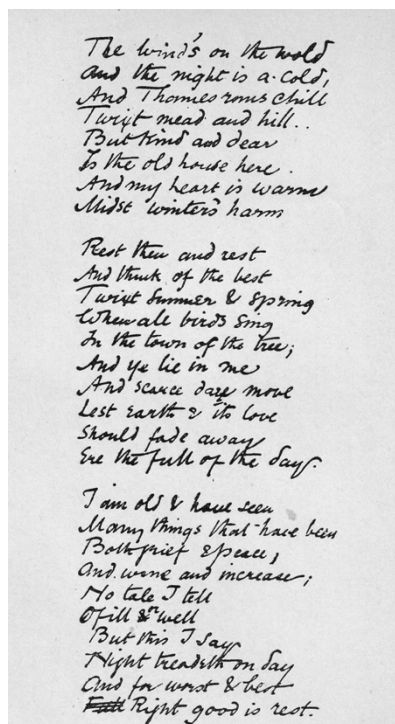 The wind's on the wold
And the night is a-cold,
And Thames runs chill
Twixt mead and hill..
But kind and dear
Is the old house here.
And my heart is warm
Midst winter's harm
Rest then and rest
And think of the best
Twixt Summer & Spring
When all birds sing
In the town of the tree;
And ye lie in me
And scarce dare move
Lest Earth & its love
Should fade away
Ere the full of the day.
I am old & have seen
Many things that have been
Both grief & peace,
And wine and increase;
No tale I tell
Of ill or well
But this I say
Night treadeth on day
And for worst & best
Right good is rest.